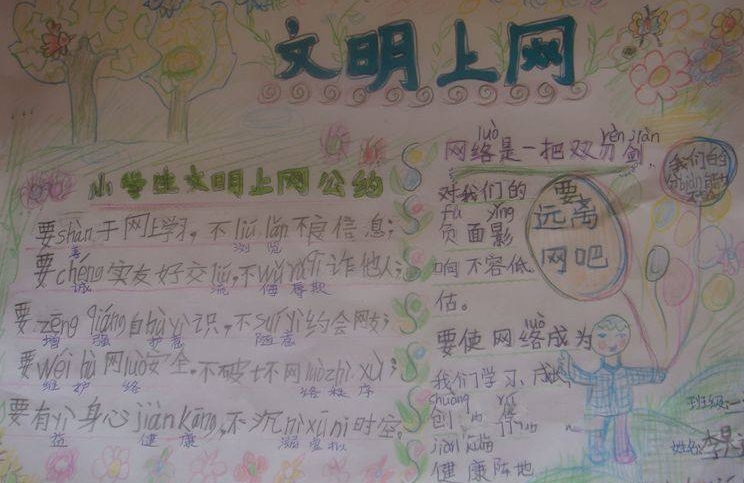 文明上网
小学生文明上网公约
要shàn于网上学习，不liú lǎn不良信息；
善 浏览
要chéng实友好交liú，不wǔ rǔ qī诈他人；
诚 流 侮辱欺
要zēng qiáng自hù yì识，不suí yì约会网友；
增强 护意 随意
要wéi hù网luò安全，不破坏网luò zhì xù；
维护 络 络秩序
要有yì身心jiàn kāng，不沉nì xū nǐ时空。
益 健康 溺虚拟
luò rèn jiàn
网络是一把双刃剑，
对我们的
fù yǐng
负面影
响不容低
估。
要使网络成为
luò
我们学习、成长、
创
健康阵地
要
远离
网吧
我们的
班级：一
姓名：李